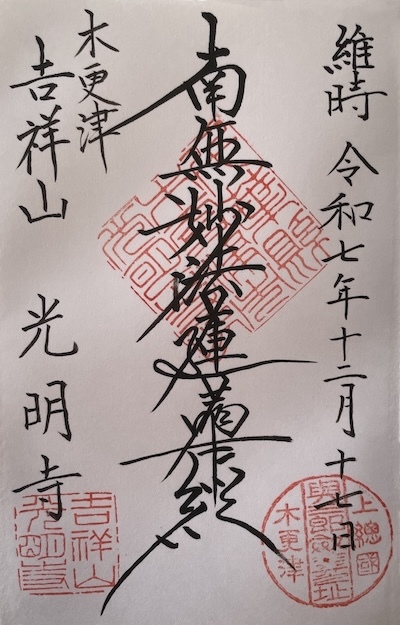 維時 令和七年十二月十七日
南無妙法蓮華経
木更津
吉祥山 光明寺
上總國
木更津
吉祥山
光明寺